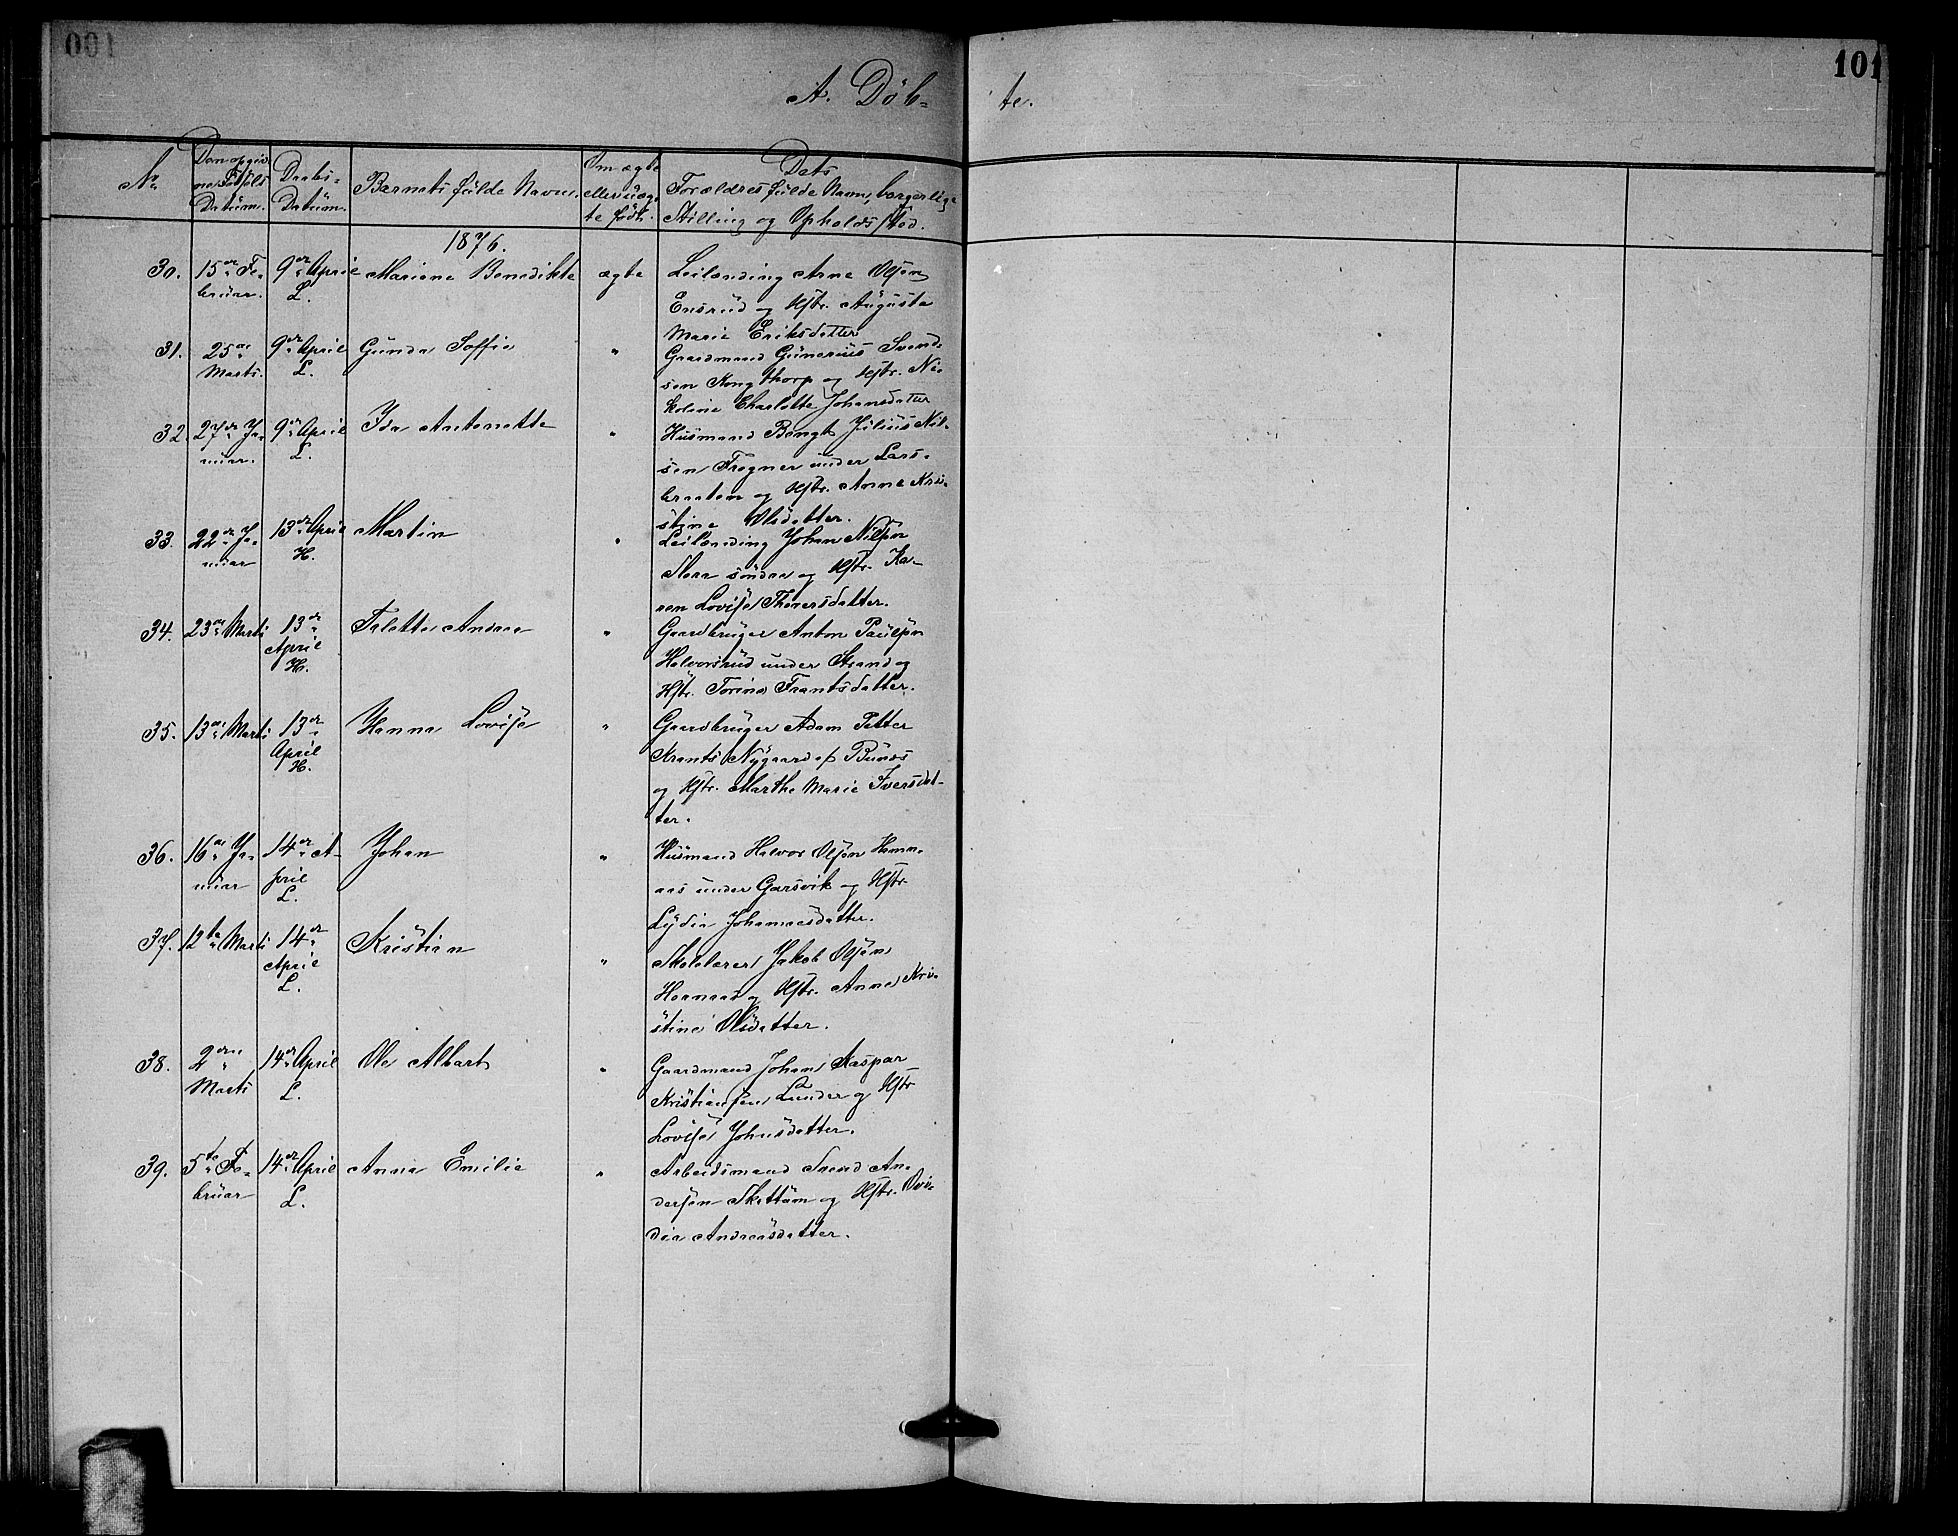 001
101
A. Døb-
te.
No
Den opgiv-
ne Fødsels
Datum.
Daabs-
Datum.
Barnets fulde Navn.
Om ægte
eller uæg-
te født.
Dets
Forældres fulde Navn, borgerlige
Stilling og Opholdssted.
1876.
30. 15de Fe- 9de April Mariane Benedikte ægte Leilænding Arne Olsen
bruar. L. Ensrud og Hstr. Augusta
Marie Eriksdatter
31. 25de 9de April Gunda Soffie " Gaardmand Gunerius Svend-
Marts. L. sen Kongthorp og Hstr. Ni-
koline Charlotte Johansdatter
32. 27de Ja- 9de April Ida Antonette " Husmand Bengt Julius Nil-
nuar. L. sen Frogner under Lars-
braaten og Hstr. Anne Kri-
stine Olsdatter.
33. 22de Ja- 13de April Martin " Leilænding Johan Nilsen
nuar H. Stora søndre og Hstr. Ka-
ren Lovise Thoresdatter.
34. 23de Marts 13de Talette Andrea " Gaardbruger Anton Paulsen
April Halvorsrud under Strand og
H. Hstr. Torine Frantsdatter.
35. 13de Marts 13de Hanna Lovise " Gaardbruger Adam Petter
April Krants Nygaard af Bunes
H. og Hstr. Marthe Marie Iversdat-
ter.
36. 16de Ja- 14de A- Johan " Husmand Halvor Olsen Hamm-
nuar pril aas under Garsvik og Hstr
L. Lydia Johannesdatter.
37. 12te Marts 14de Kristian " Skolelærer Jakob Olsen
April Hornaas og Hstr. Anne Kri-
L. stine Olsdatter.
38. 2den 14de April Ole Albart " Gaardmand Johan Kaspar
Marts L. Kristiansen Lunder og Hstr
Lovise Johnsdatter.
39. 5te Fe- 14de April Anna Emilie " Arbeidsmand Svend An-
bruar L. dersen Skattum og Hstr. Ovi-
dia Andreasdatter.